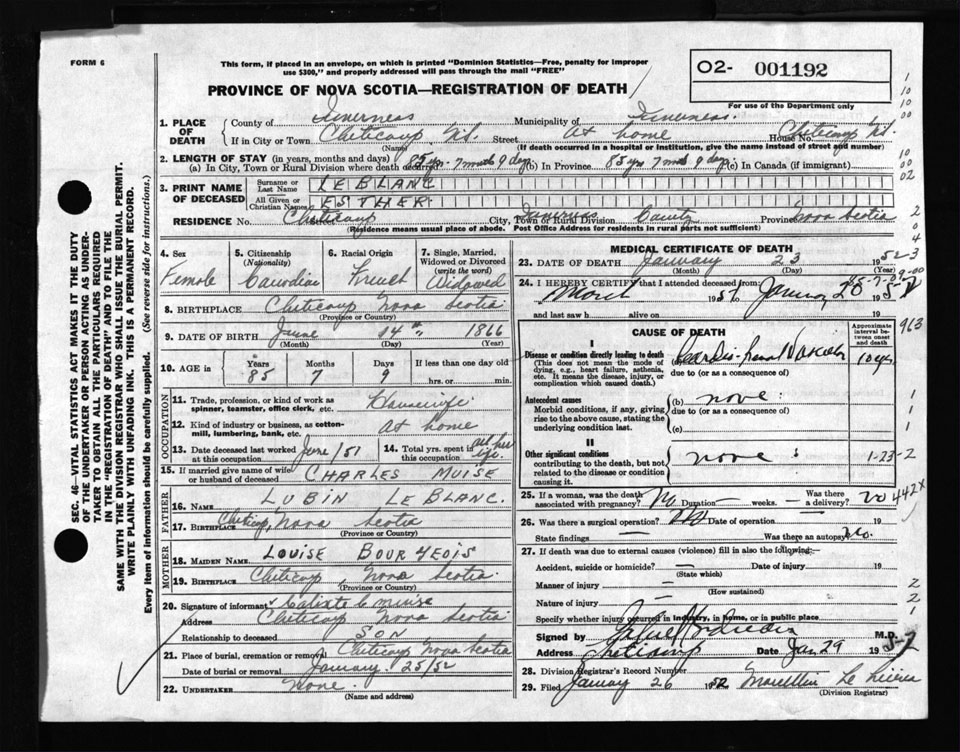 FORM 6
This form, if placed in an envelope, on which is printed "Dominion Statistics—Free, penalty for improper
use $300," and properly addressed will pass through the mail "FREE"
PROVINCE OF NOVA SCOTIA—REGISTRATION OF DEATH
O2- 001192
For use of the Department only
1. PLACE OF DEATH
County of Inverness Municipality of Inverness.
If in City or Town Cheticamp N.S. Street At home House No. Cheticamp N.S.
(Name) (If death occurred in a hospital or institution, give the name instead of street and number)
2. LENGTH OF STAY (in years, months and days)
(a) In City, Town or Rural Division where death occurred 85 yrs. 7 mnths 9 days (b) In Province 85 yrs 7 mnths 9 days (c) In Canada (if immigrant)
3. PRINT NAME OF DECEASED
Surname or Last Name LEBLANC
All Given or Christian Names ESTHER
RESIDENCE No. Cheticamp Inverness County Province Nova Scotia
City, Town or Rural Division
(Residence means usual place of abode. Post Office Address for residents in rural parts not sufficient)
4. Sex Female
5. Citizenship (Nationality) Canadian
6. Racial Origin French
7. Single, Married, Widowed or Divorced (write the word) Widowed
8. BIRTHPLACE Cheticamp Nova Scotia
(Province or Country)
9. DATE OF BIRTH June 14th 1866
(Month) (Day) (Year)
10. AGE in Years 85 Months 7 Days 9 If less than one day old
hrs. or min.
OCCUPATION
11. Trade, profession, or kind of work as spinner, teamster, office clerk, etc. Housewife.
12. Kind of industry or business, as cotton-mill, lumbering, bank, etc. At home
13. Date deceased last worked at this occupation June/51
14. Total yrs. spent in this occupation all her life.
15. If married give name of wife or husband of deceased CHARLES MUISE
FATHER
16. NAME LUBIN LEBLANC.
17. BIRTHPLACE Cheticamp, Nova Scotia
(Province or Country)
MOTHER
18. MAIDEN NAME LOUISE BOURGEOIS
19. BIRTHPLACE Cheticamp, Nova Scotia.
(Province or Country)
20. Signature of informant Calixte C Muise
Address Cheticamp Nova Scotia
Relationship to deceased SON
21. Place of burial, cremation or removal Cheticamp Nova Scotia
Date of burial or removal January. 25/52
22. UNDERTAKER None.
(Name and address)
MEDICAL CERTIFICATE OF DEATH
23. DATE OF DEATH January 23 1952
(Month) (Day) (Year)
24. I HEREBY CERTIFY that I attended deceased from
March 1951 to January 1952
and last saw h alive on 19
CAUSE OF DEATH
Approximate interval between onset and death
I
Disease or condition directly leading to death
(This does not mean the mode of dying, e.g., heart failure, asthenia, etc. It means the disease, injury, or complication which caused death.)
Cardio-renal Vascular 10 yrs
due to (or as a consequence of)
Antecedent causes
Morbid conditions, if any, giving rise to the above cause, stating the underlying condition last.
(b) none.
due to (or as a consequence of)
(c)
II
Other significant conditions
contributing to the death, but not related to the disease or condition causing it.
none
1-23-2
25. If a woman, was the death associated with pregnancy? No Duration — weeks. Was there a delivery? no
442X
26. Was there a surgical operation? No Date of operation — 19
State findings — Was there an autopsy No.
27. If death was due to external causes (violence) fill in also the following:
Accident, suicide or homicide? — Date of injury 19
(State which)
Manner of injury —
(How sustained)
Nature of injury —
Specify whether injury occurred in industry, in home, or in public place
Signed by M.D.
Address Cheticamp Date Jan 29 1952
28. Division Registrar's Record Number
29. Filed January 26 1952
(Division Registrar)
963
SEC. 46—VITAL STATISTICS ACT MAKES IT THE DUTY
OF THE UNDERTAKER OR PERSON ACTING AS UNDER-
TAKER TO OBTAIN ALL THE PARTICULARS REQUIRED
IN THE "REGISTRATION OF DEATH" AND TO FILE THE
SAME WITH THE DIVISION REGISTRAR WHO SHALL ISSUE THE BURIAL PERMIT.
WRITE PLAINLY WITH UNFADING INK. THIS IS A PERMANENT RECORD.
Every item of information should be carefully supplied. (See reverse side for instructions.)